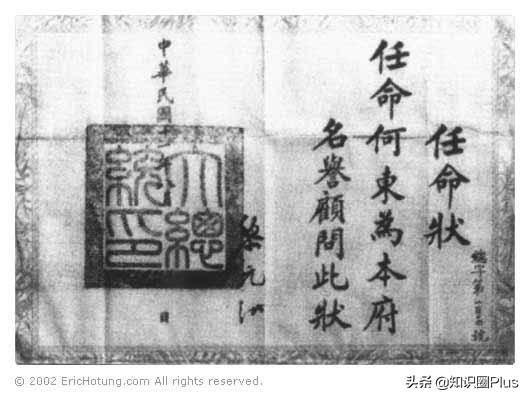 任命狀
字第 號
任命何東為本府
名譽顧問此狀
黎元洪
大總統印
中華民國十 日
© 2002 EricHotung.com All rights reserved.
头条 @知识圈Plus